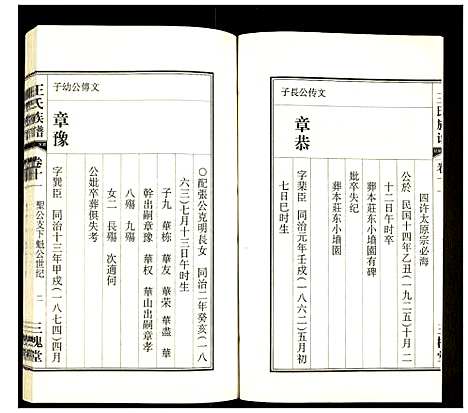 文传公長子
章恭
字棐臣 同治元年壬戌(一八六二)五月初
七日巳时生
公於 民国十四年乙丑(一九二五)十月二
十二日午时卒
葬本莊东小墙園有碑
妣卒失纪
葬本莊东小墙園
四许太原宗必海
王氏族谱
三槐堂
○配張公克明長女 同治二年癸亥(一八
六三)七月十三日午时生
子九 華栋 華友 華荣 華盡 華
幹出嗣章豫 華权 華山出嗣章孝
八殤 九殤
女二 長殤 次適何
公妣卒葬俱失考
文傳公幼子
章豫
字巽臣 同治十三年甲戌(一八七四)四月
王氏族谱
卷十一
聖公支下魁公世纪
二
三槐堂